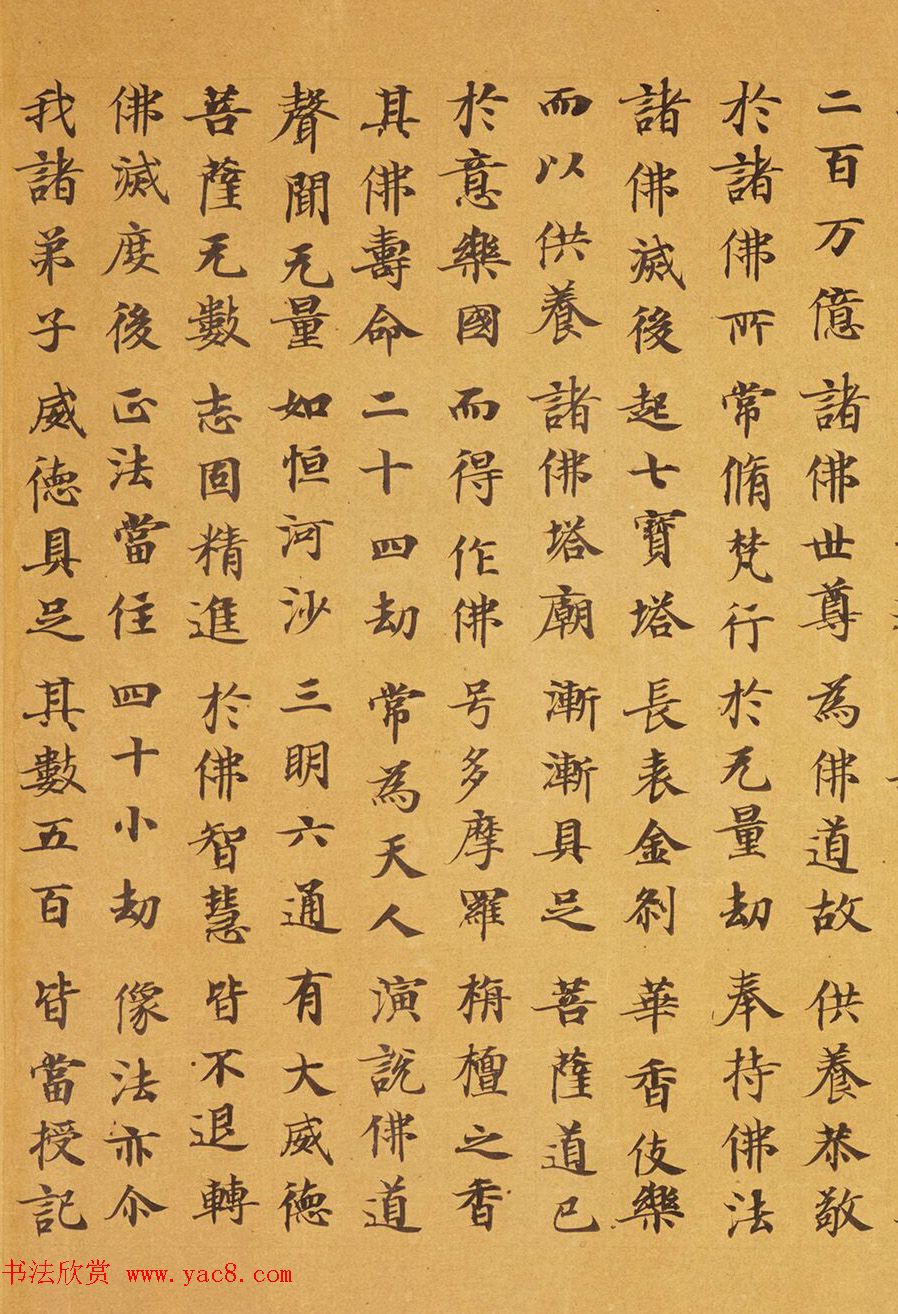 二百万億諸佛世尊為佛道故供養恭敬
於諸佛所常脩梵行於无量劫奉持佛法
諸佛滅後起七寶塔長表金刹華香伎樂
而以供養諸佛塔廟漸漸具足菩薩道已
於意樂國而得作佛号多摩羅栴檀之香
其佛壽命二十四劫常為天人演說佛道
聲聞无量如恒河沙三明六通有大威德
菩薩无數志固精進於佛智慧皆不退轉
佛滅度後正法當住四十小劫像法亦尒
我諸弟子威德具足其數五百皆當授記
书法欣赏 www.yac8.com